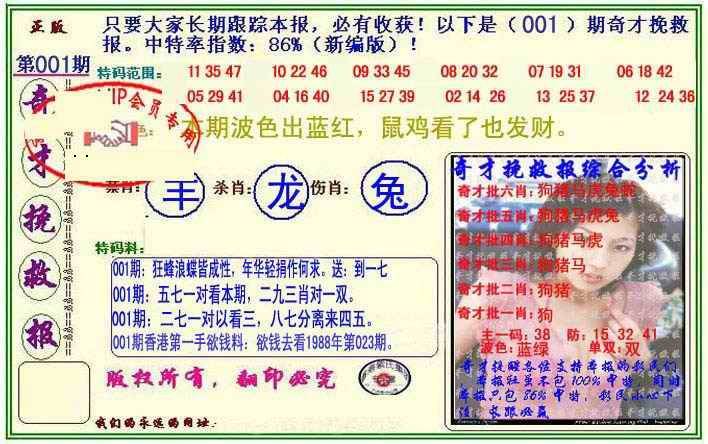 正版
只要大家长期跟踪本报，必有收获！以下是（001）期奇才挽救
报。中特率指数：86%（新编版）！
第001期
特码范围：
11 35 47 10 22 46 09 33 45 08 20 32 07 19 31 06 18 42
05 29 41 04 16 40 15 27 39 02 14 26 13 25 37 12 24 36
IP会员专用
色：本期波色出蓝红，鼠鸡看了也发财。
奇才挽救报
禁肖：羊 杀肖：龙 伤肖：兔
特码料：
001期：狂蜂浪蝶皆成性，年华轻捐作何求。送：到一七
001期：五七一对看本期，二九三肖对一双。
001期：二七一对以看三，八七分离来四五。
001期香港第一手欲钱料：欲钱去看1988年第023期。
版权所有，翻印必究
我们的永远的网址：
奇才挽救报综合分析
奇才批六肖：狗猪马虎兔蛇
奇才批五肖：狗猪马虎兔
奇才批四肖：狗猪马虎
奇才批三肖：狗猪马
奇才批二肖：狗猪
奇才批一肖：狗
主一码：38 防：15 32 41
波色：蓝绿 单双：双
本报社虽不包100%中特，同时
本报只包86%中特，彩民小心下
注